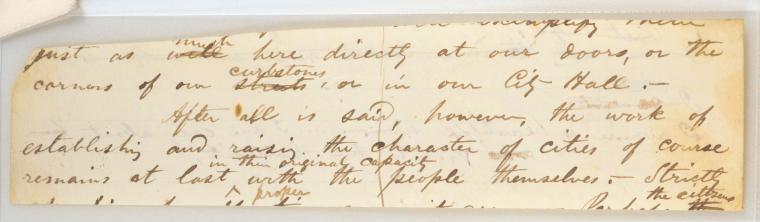 exemplify there
just as much here directly at our doors, or the
corners of our curbstones, or in our City Hall. —
After all is said, however, the work of
establishing and raising the character of cities of course
remains at last in their original capacity with the people themselves. — Strictly
proper
the citizens